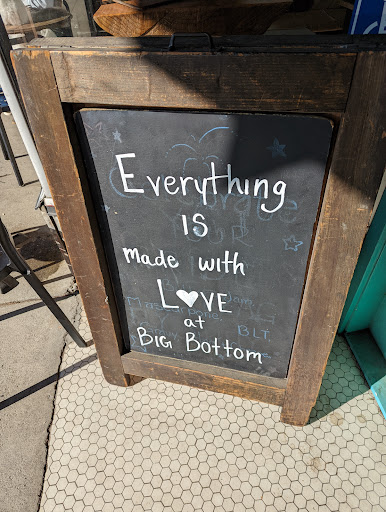 Everything
IS
made with
L♥VE
at
BIG BOTTOM
Jam,
BLT,